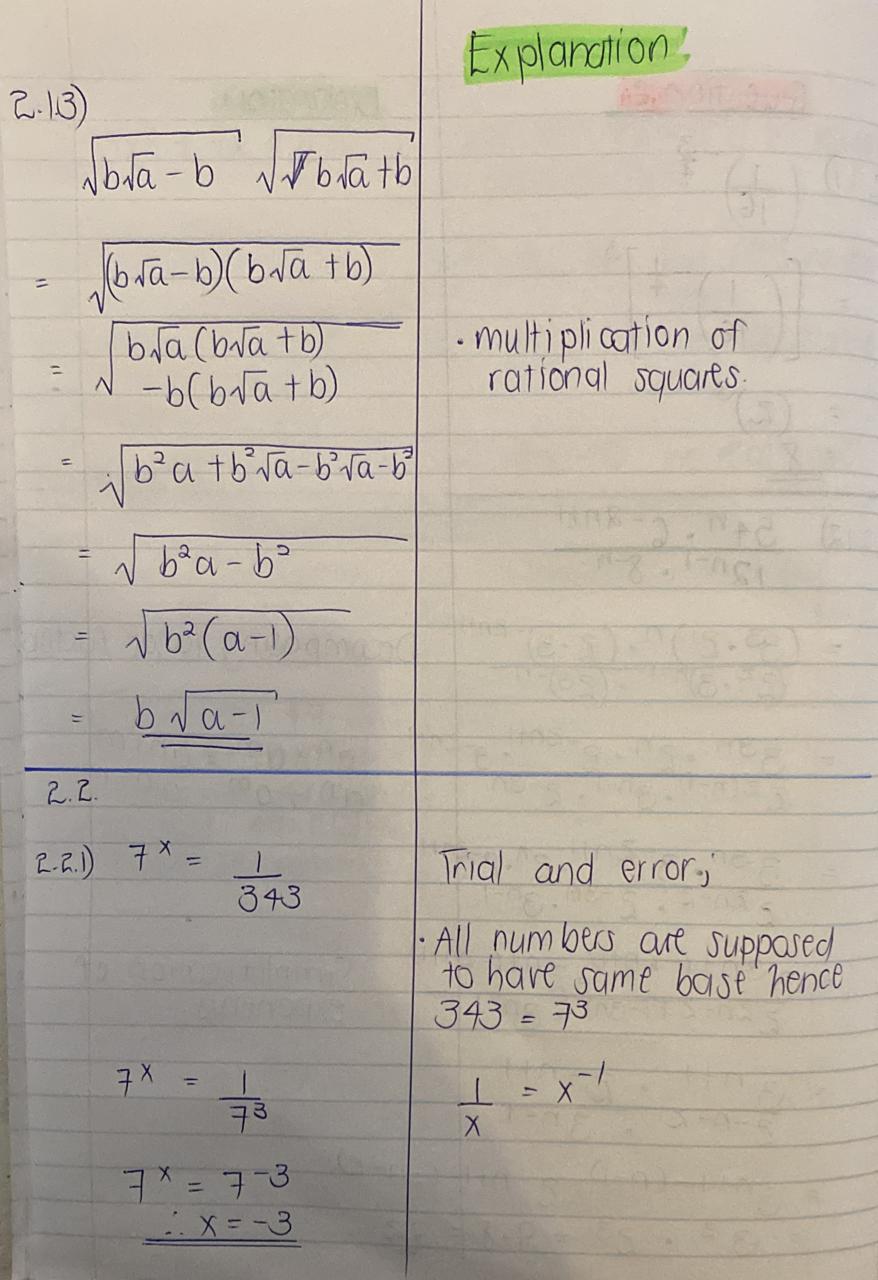 Explanation
2.1.3)
√(b√a - b) √(b√a + b)
= √((b√a - b)(b√a + b))
= √(b√a (b√a + b)
- b(b√a + b))
· multiplication of
rational squares.
= √(b²a + b²√a - b²√a - b²)
= √(b²a - b²)
= √(b²(a - 1))
= b√(a - 1)
2.2.
2.2.1) 7^x = 1/343
Trial and error;
· All numbers are supposed
to have same base hence
343 = 7³
7^x = 1/7³
1/x = x⁻¹
7^x = 7⁻³
∴ x = -3